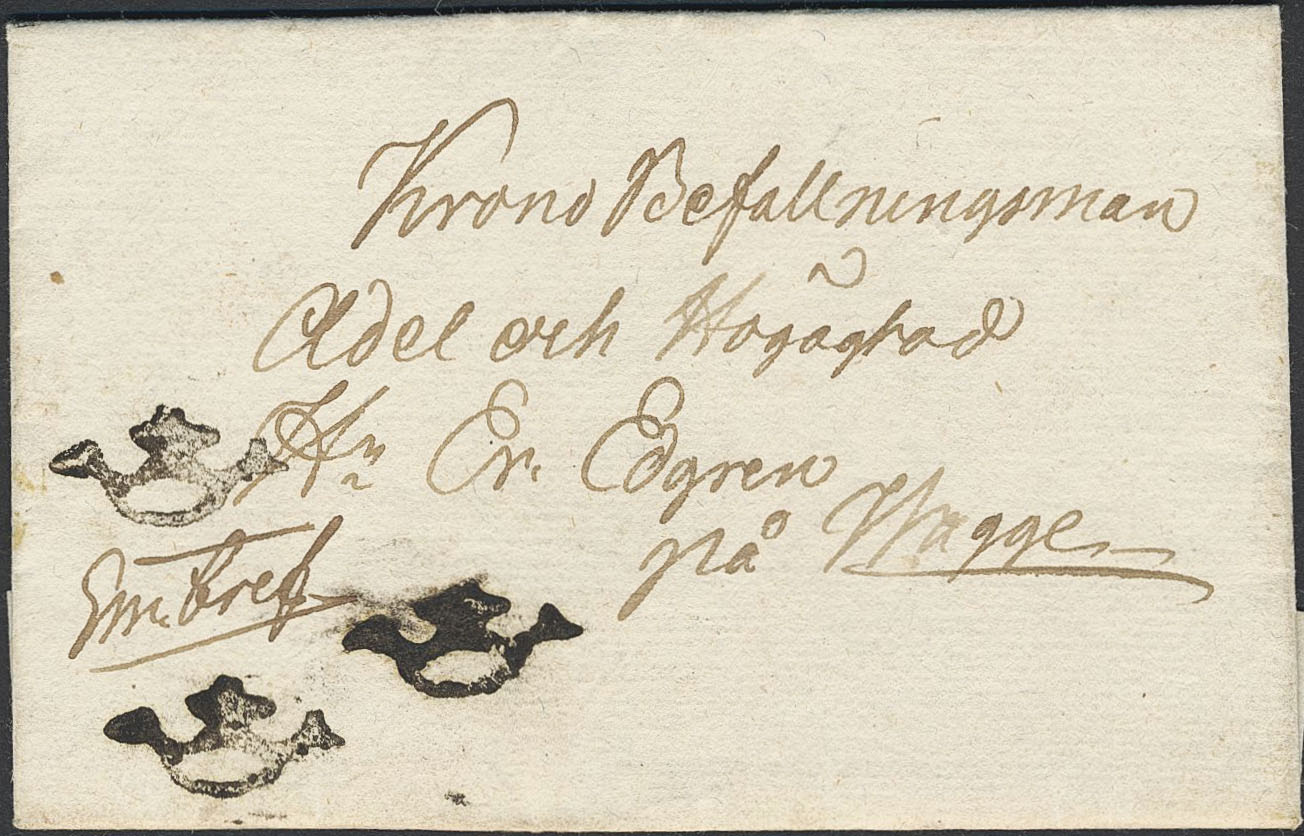 Krono Befallningsman
Ädel och Högagtad
Hr Er. Edgren
på Wägge
Em. bref